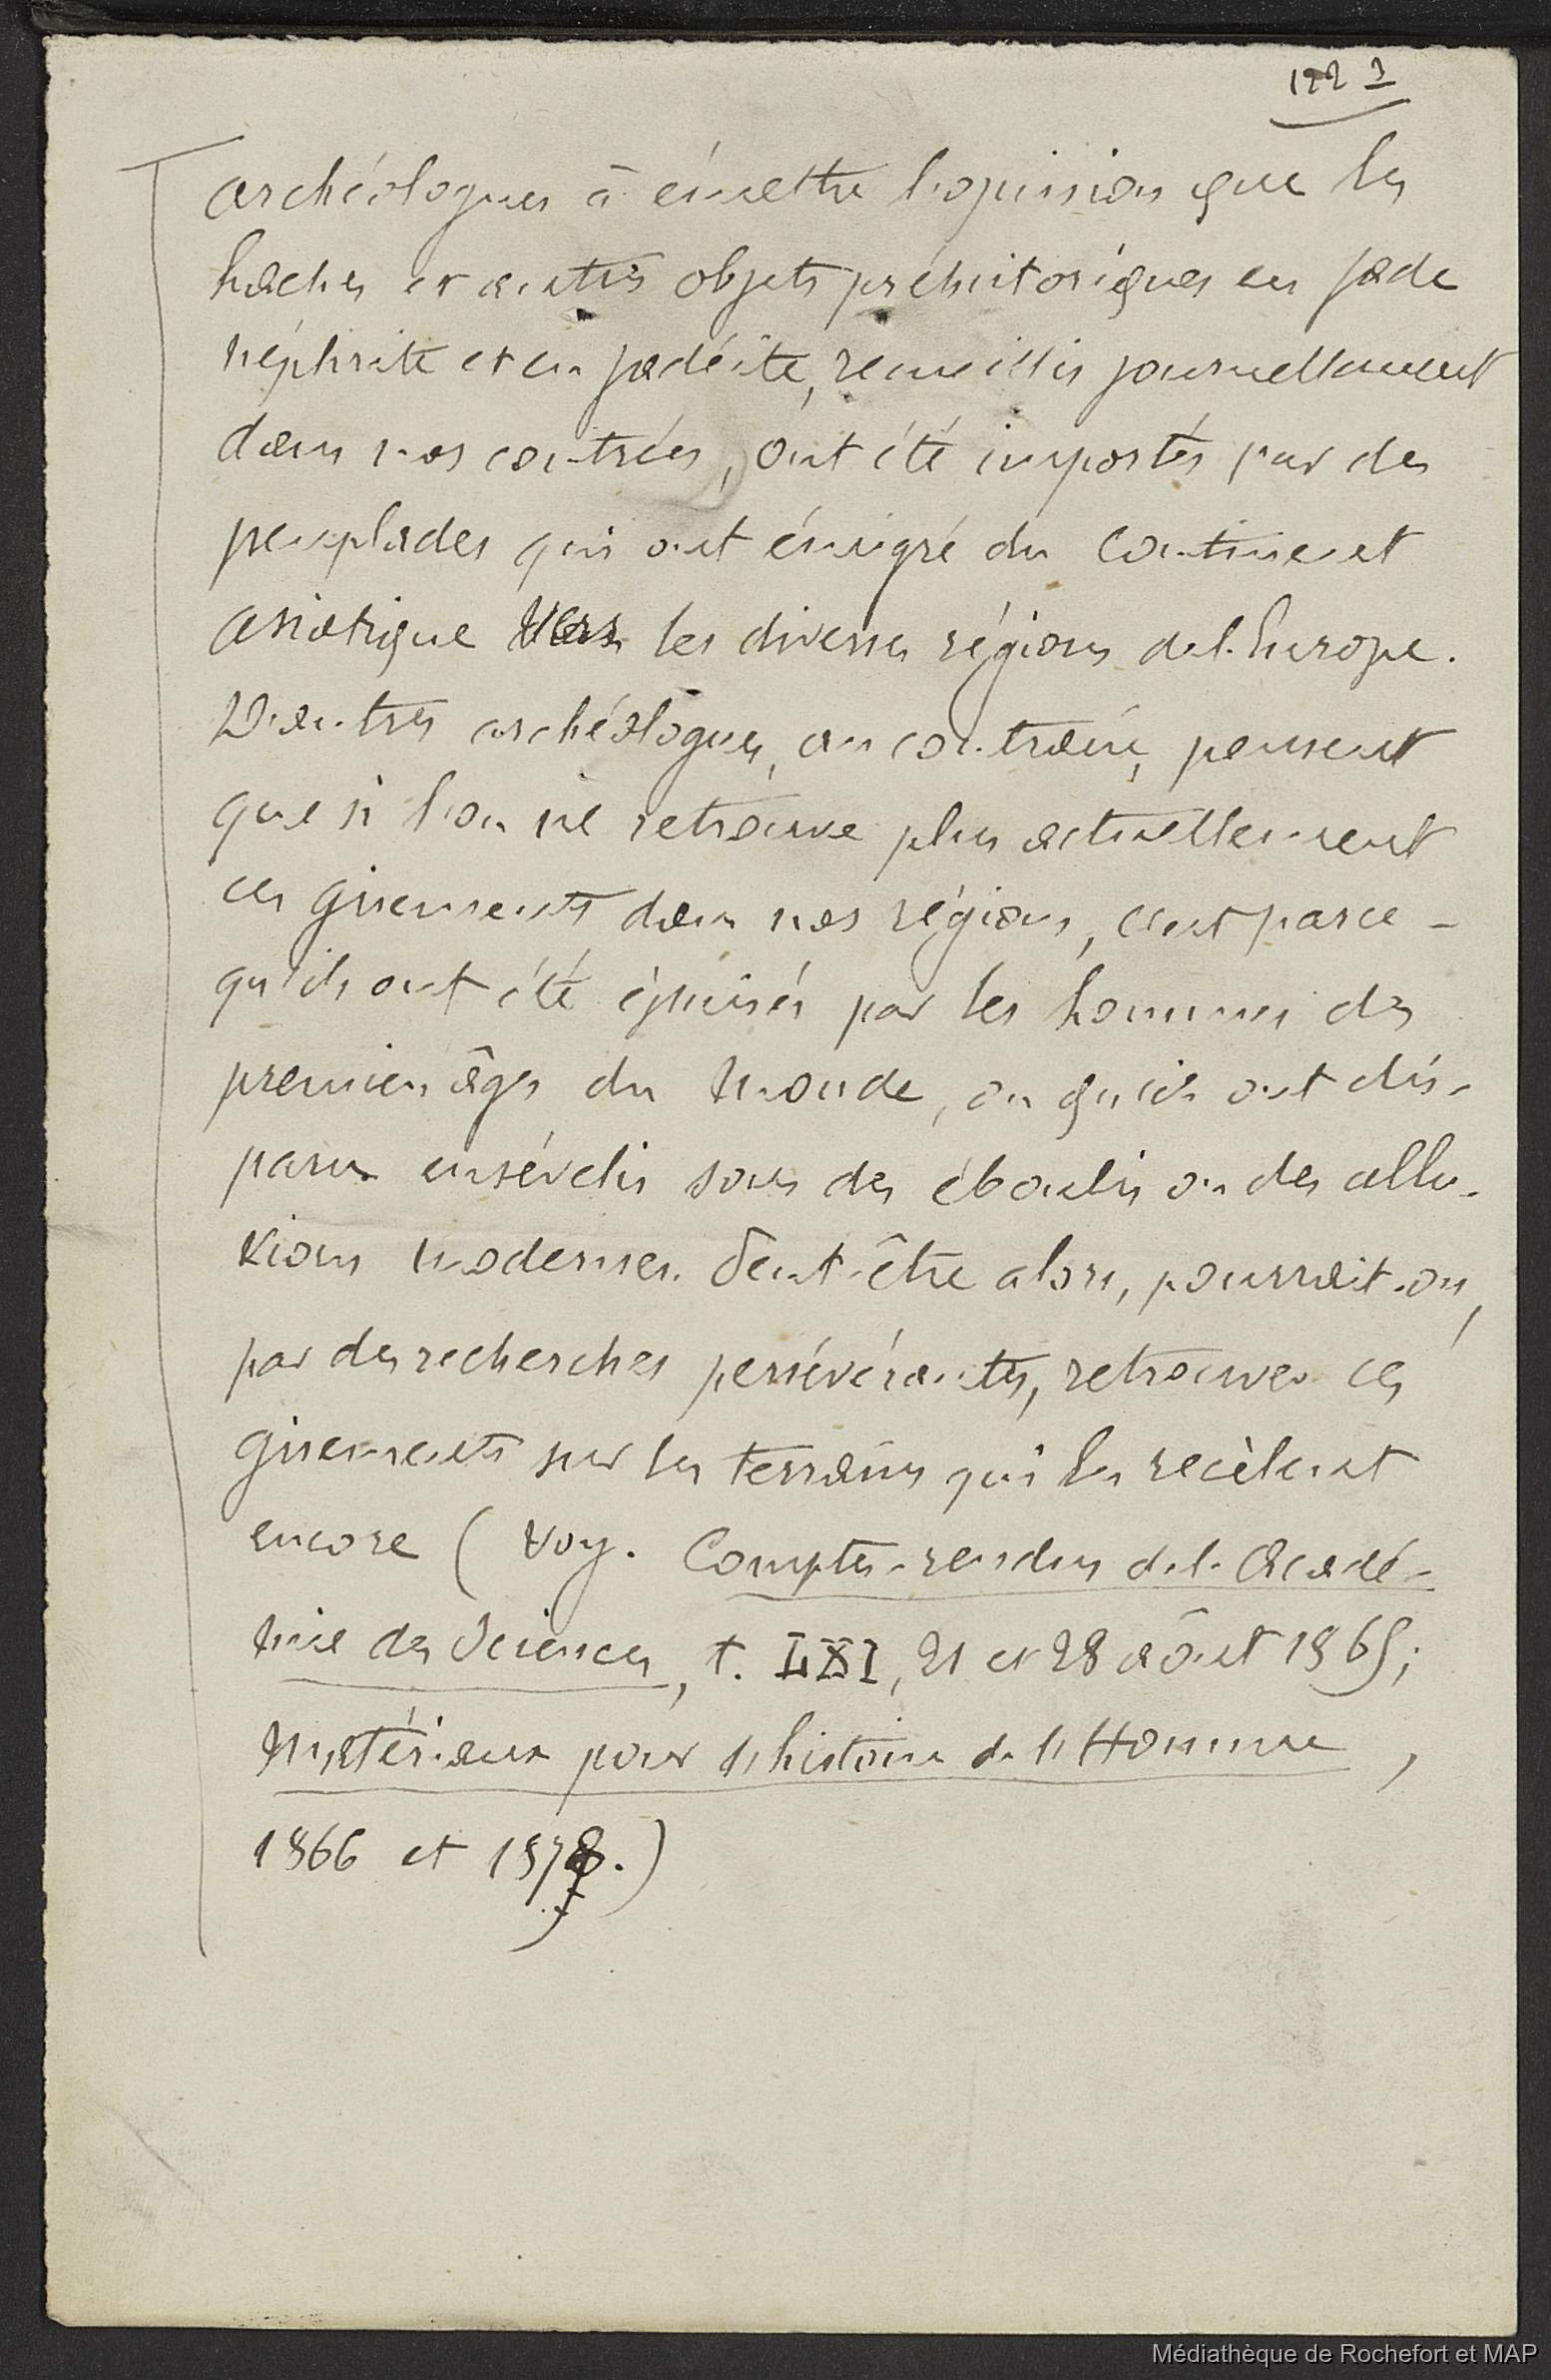 archéologues à émettre l'opinion que les
haches et autres objets préhistoriques en jade
néphrite et en jadéite, recueillis journellement
dans nos contrées, ont été importés par des
peuplades qui ont émigré du continent
asiatique vers les diverses régions de l'Europe.
D'autres archéologues, au contraire, pensent
que si l'on ne retrouve plus actuellement
ces gisements dans nos régions, c'est parce-
qu'ils ont été épuisés par les hommes des
premiers âges du monde, ou qu'ils ont dis-
paru ensévelis sous des éboulis ou des allu-
vions modernes. Peut-être alors, pourrait-on,
par des recherches persévérantes, retrouver ces
gisements sur les terrains qui les recèlent
encore (Voy. Comptes-rendus de l'Acadé-
mie des Sciences, t. LXI, 21 et 28 août 1865;
Matériaux pour l'histoire de l'Homme,
1866 et 187.)
Médiathèque de Rochefort et MAP